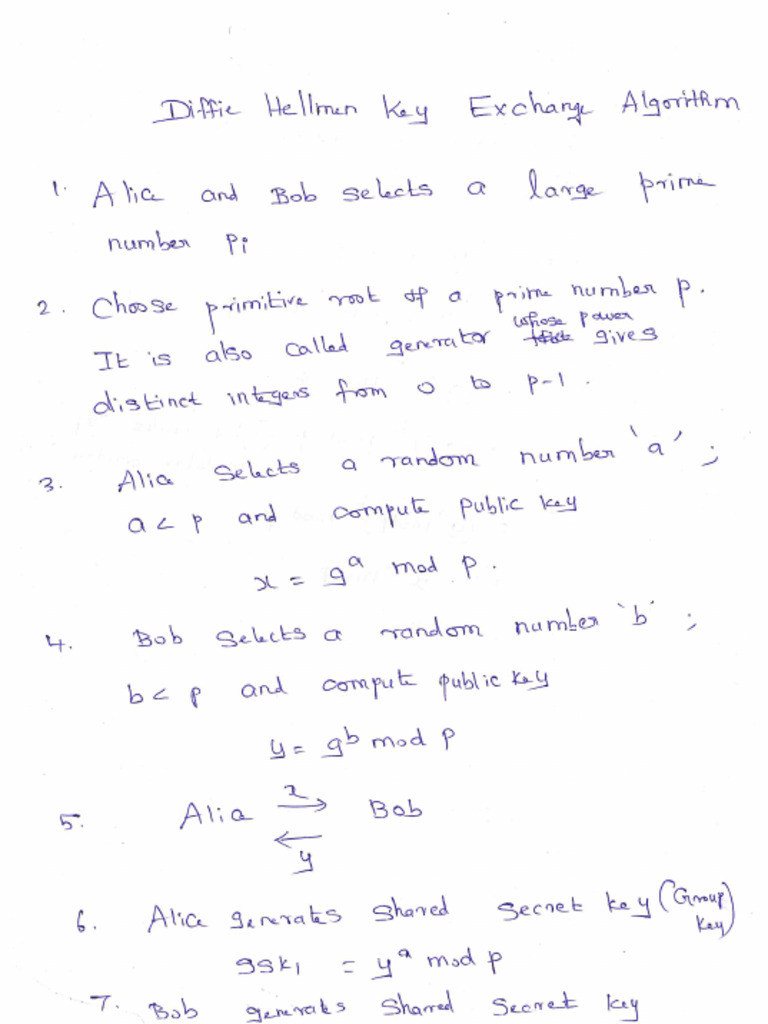 Diffie Hellman Key Exchange Algorithm
1. Alice and Bob selects a large prime
number p;
2. Choose primitive root of a prime number p.
whose power
It is also called generator gives
distinct integers from 0 to p-1.
3. Alice Selects a random number 'a';
a < p and compute public key
x = g^a mod p.
4. Bob Selects a random number 'b';
b < p and compute public key
y = g^b mod p
5. Alice x → Bob
← y
6. Alice generates shared secret key (Group
key)
gsk1 = y^a mod p
7. Bob generates shared secret key